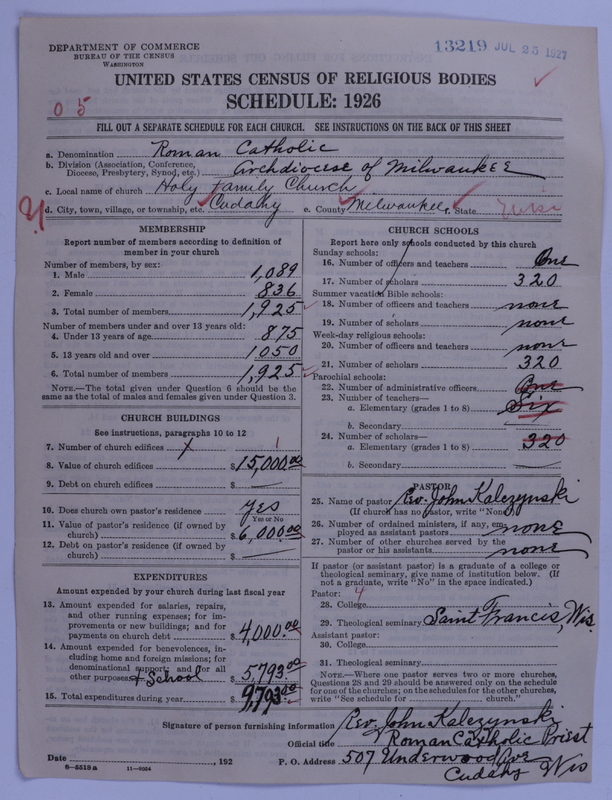 DEPARTMENT OF COMMERCE
BUREAU OF THE CENSUS
WASHINGTON
13219 JUL 25 1927
UNITED STATES CENSUS OF RELIGIOUS BODIES
SCHEDULE: 1926
05
FILL OUT A SEPARATE SCHEDULE FOR EACH CHURCH. SEE INSTRUCTIONS ON THE BACK OF THIS SHEET
a. Denomination Roman Catholic
b. Division (Association, Conference, Diocese, Presbytery, Synod, etc.) Archdiocese of Milwaukee
c. Local name of church Holy Family Church
d. City, town, village, or township, etc. Cudahy e. County Milwaukee f. State
MEMBERSHIP
Report number of members according to definition of
member in your church
Number of members, by sex:
1. Male 1,089
2. Female 836
3. Total number of members 1,925
Number of members under and over 13 years old:
4. Under 13 years of age 875
5. 13 years old and over 1050
6. Total number of members 1,925
NOTE.—The total given under Question 6 should be the
same as the total of males and females given under Question 3.
CHURCH BUILDINGS
See instructions, paragraphs 10 to 12
7. Number of church edifices 1
8. Value of church edifices $15,000.00
9. Debt on church edifices $
10. Does church own pastor's residence yes
Yes or No
11. Value of pastor's residence (if owned by
church) $6,000.00
12. Debt on pastor's residence (if owned by
church) $
EXPENDITURES
Amount expended by your church during last fiscal year
13. Amount expended for salaries, repairs,
and other running expenses; for im-
provements or new buildings; and for
payments on church debt $4,000.00
14. Amount expended for benevolences, in-
cluding home and foreign missions; for
denominational support; and for all
other purposes + School $5793.00
15. Total expenditures during year $9,793.00
CHURCH SCHOOLS
Report here only schools conducted by this church
Sunday schools:
16. Number of officers and teachers One
17. Number of scholars 320
Summer vacation Bible schools:
18. Number of officers and teachers none
19. Number of scholars none
Week-day religious schools:
20. Number of officers and teachers none
21. Number of scholars 320
Parochial schools:
22. Number of administrative officers One
23. Number of teachers—
a. Elementary (grades 1 to 8) Six
b. Secondary
24. Number of scholars—
a. Elementary (grades 1 to 8) 320
b. Secondary
PASTOR
25. Name of pastor Rev. John Kalczynski
(If church has no pastor, write "None")
26. Number of ordained ministers, if any, em-
ployed as assistant pastors none
27. Number of other churches served by the
pastor or his assistants none
If pastor (or assistant pastor) is a graduate of a college or
theological seminary, give name of institution below. (If
not a graduate, write "No" in the space indicated.)
Pastor:
28. College
29. Theological seminary Saint Francis, Wis.
Assistant pastor:
30. College
31. Theological seminary
NOTE.—Where one pastor serves two or more churches,
Questions 28 and 29 should be answered only on the schedule
for one of the churches; on the schedules for the other churches,
write "See schedule for church."
Signature of person furnishing information Rev. John Kalczynski
Official title Roman Catholic Priest
Date , 192 P. O. Address 507 Underwood Ave
Cudahy Wis
8—5518a 11—9054